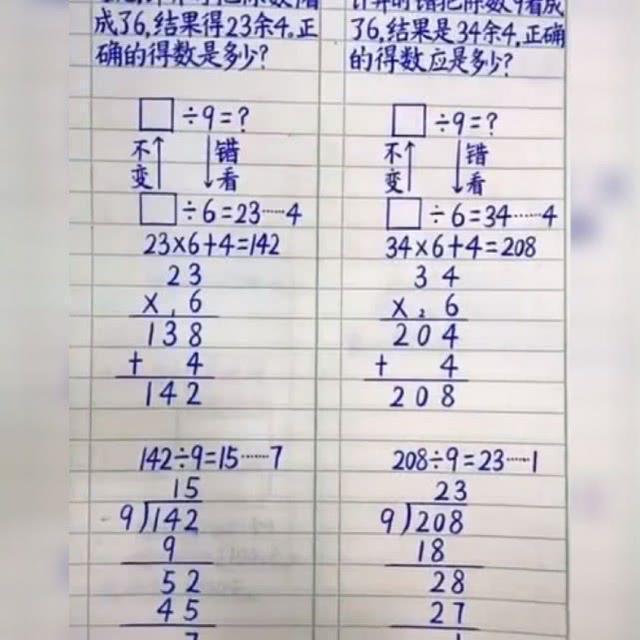 成了6,结果得23余4。正
确的得数是多少?
□÷9=?
不变 错看
□÷6=23……4
23×6+4=142
23
×₁6
138
+ 4
142
142÷9=15……7
15
9)142
9
52
45
7
计算时错把除数9看成
了6,结果是34余4。正确
的得数应是多少?
□÷9=?
不变 错看
□÷6=34……4
34×6+4=208
34
×₂6
204
+ 4
208
208÷9=23……1
23
9)208
18
28
27